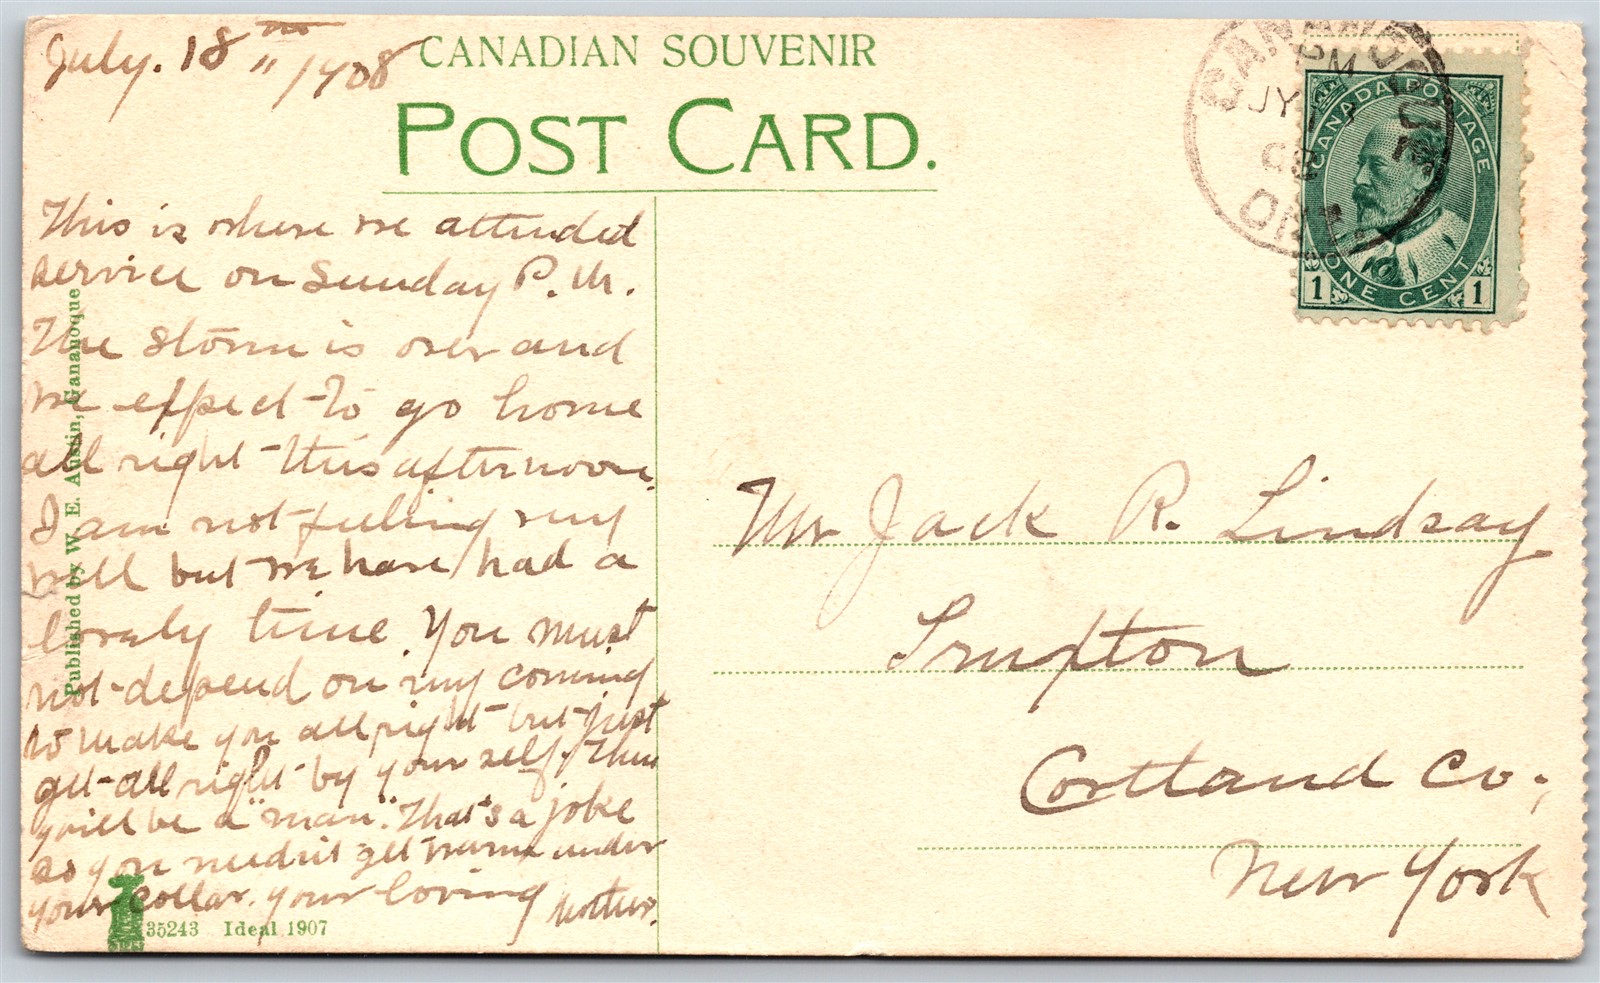 July. 18 " 1908
CANADIAN SOUVENIR
POST CARD.
This is where we attended
service on Sunday P.M.
The storm is over and
we expect to go home
all right this afternoon.
I am not feeling very
well but we have had a
lovely time. You must
not depend on my coming
to make you all right but just
get all right by yourself. Then
you'll be a "man". That's a joke
so you needn't get warm under
your collar. your loving Mother.
Published by W. E. Austin, Gananoque
35243 Ideal 1907
GANANOQUE
PM
JY
08
ONT
CANADA POSTAGE
ONE CENT
1 1
Mr Jack R. Lindsay
Cortland Co.,
New York